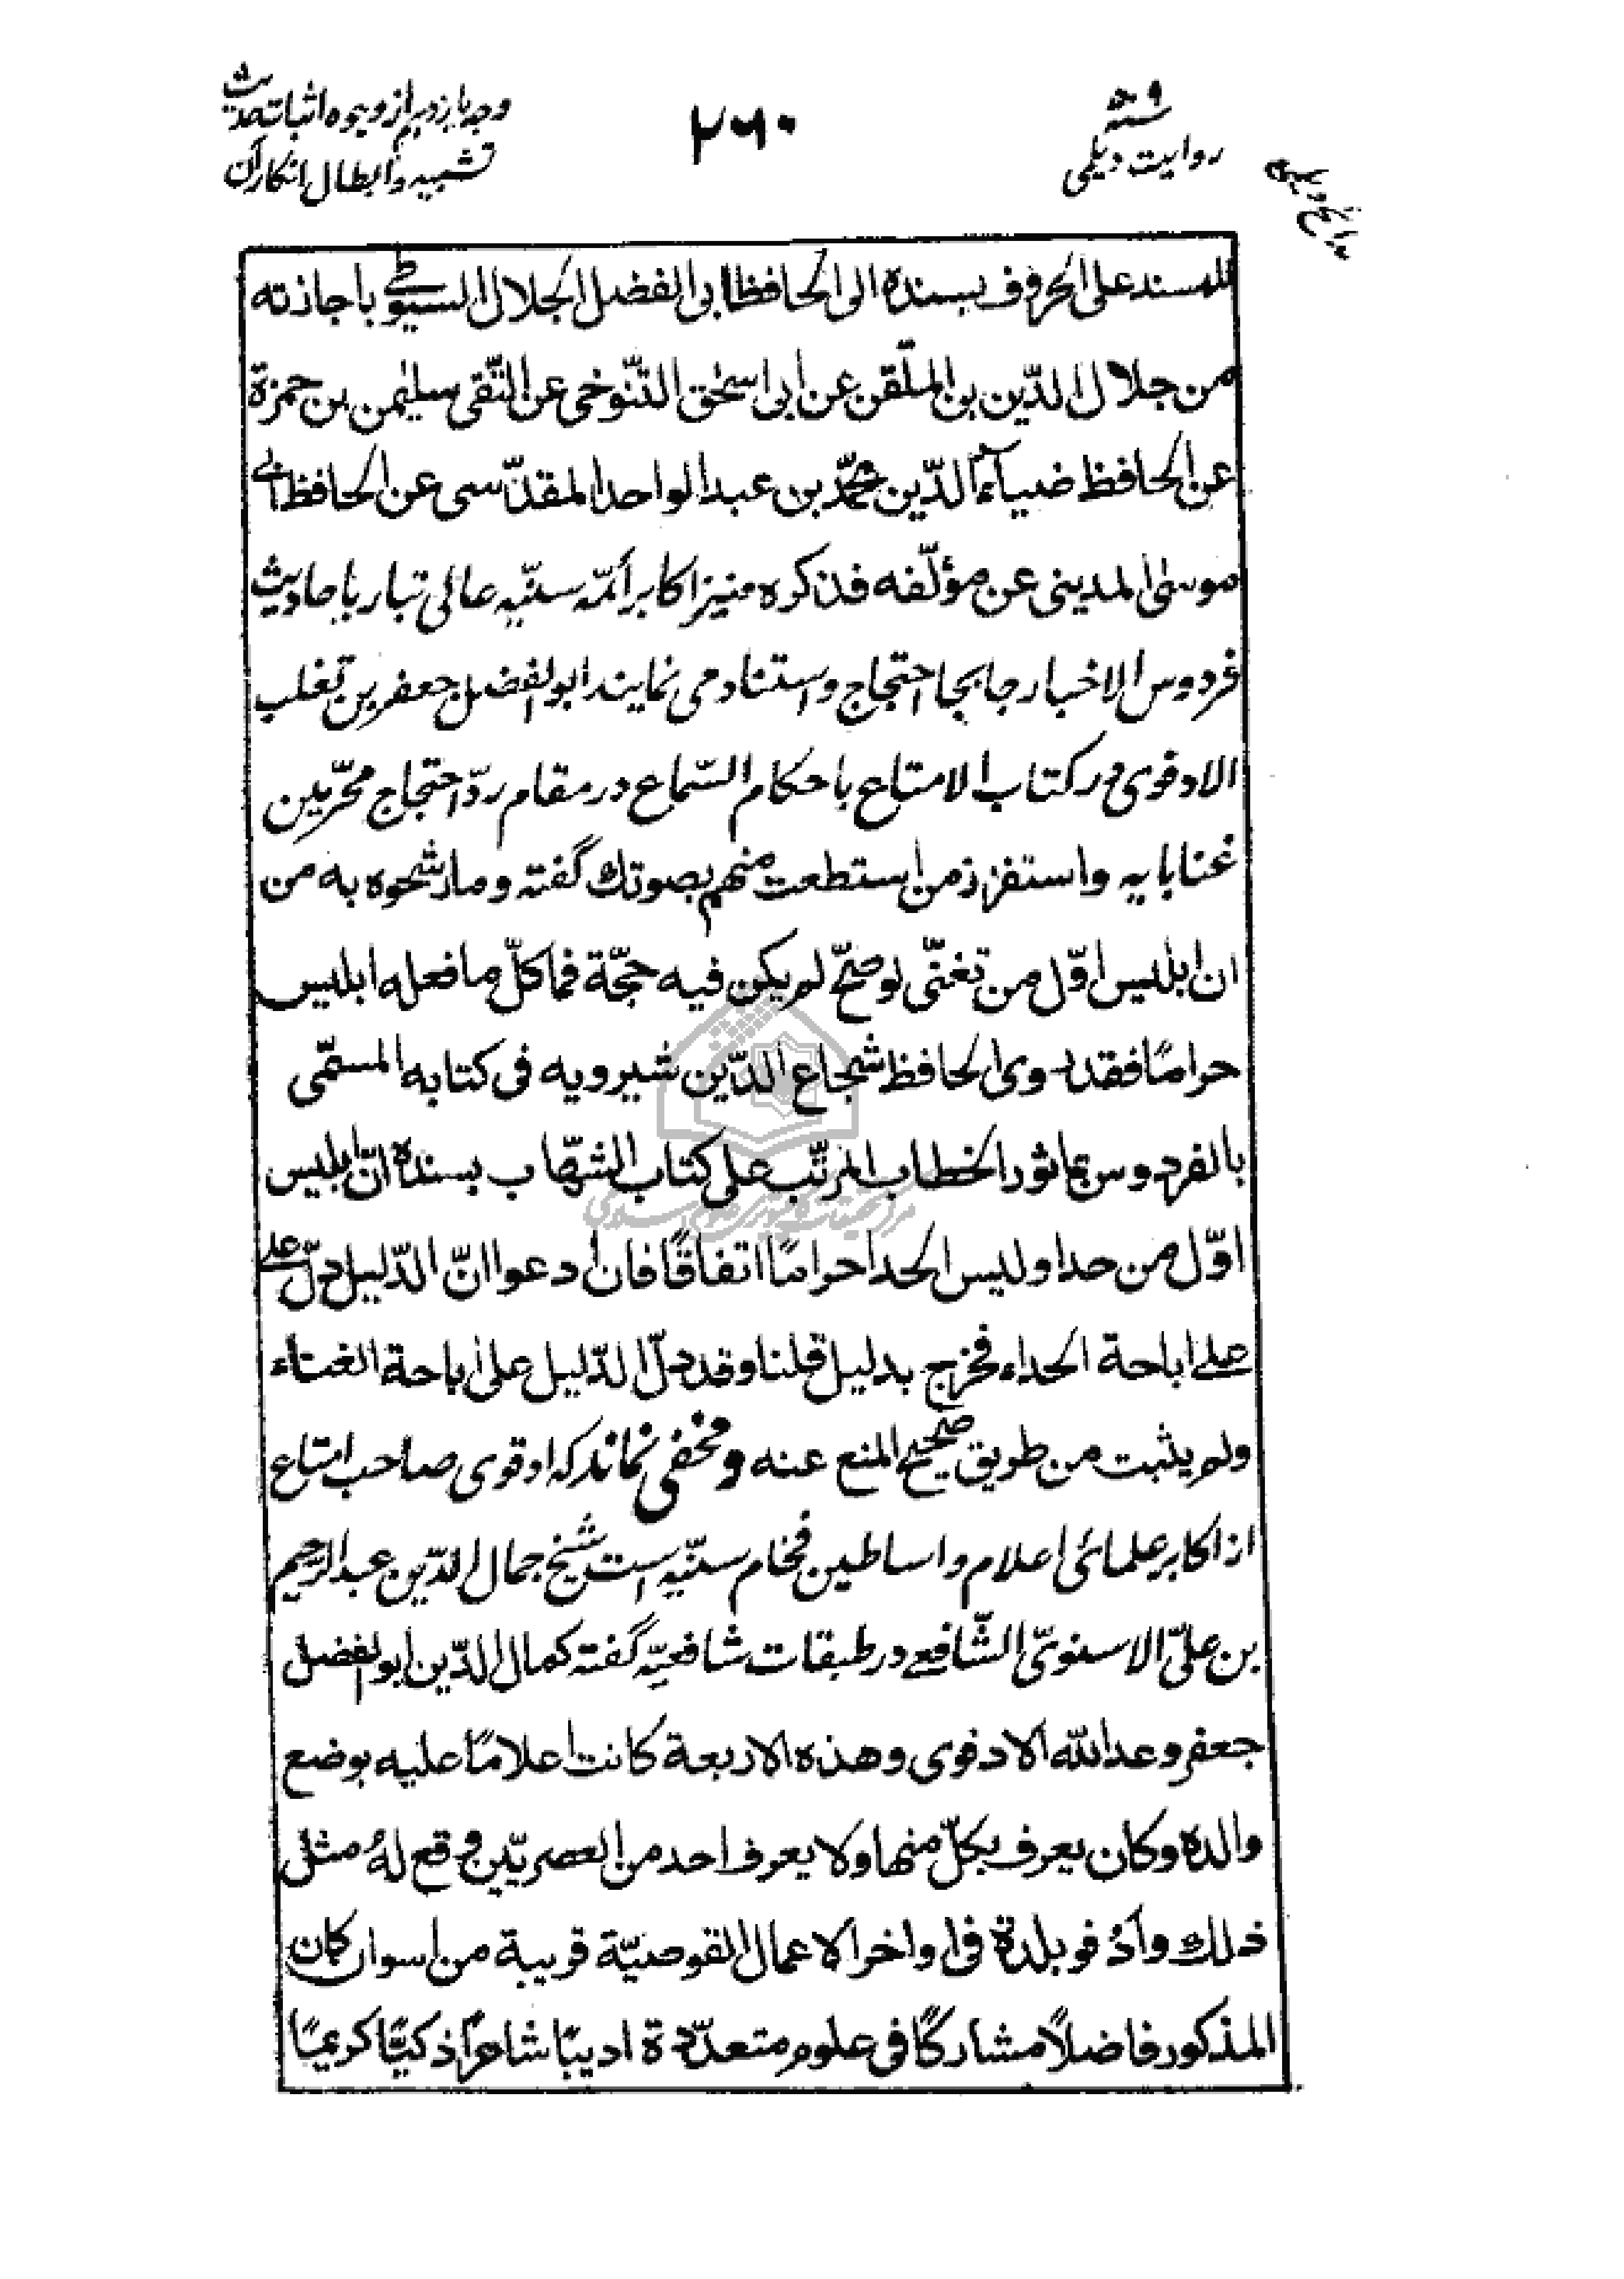 وجه یازدهم از وجوه اثبات حدیث
تشبیه و ابطال انکار آن
۲۶۰
روایت دیلمی
للمسند على الحروف بسنده الى الحافظ ابى الفضل الجلال السيوطى باجازته
من جلال الدّين بن الملقّن عن ابى اسحٰق التّنوخى عن التّقى سليمٰن بن حمزة
عن الحافظ ضيآء الدّين محمّد بن عبد الواحد المقدّسى عن الحافظ ابى
موسى المدينى عن مؤلّفه فذكره و نیز اکابر ائمّه سنّیّه عالی تبار باحادیث
فردوس الاخبار جابجا احتجاج و استناد می نمایند ابو الفضل جعفر بن تغلب
الادفوی در کتاب الامتاع باحکام السّماع در مقام ردّ احتجاج محرّمین
غنا بایه واستفزز من استطعت منهم بصوتك گفته وما رشحوه به من
ان ابليس اوّل من تغنّى لو صحّ لم يكن فيه حجّة فما كلّ ما فعله ابليس
حرامًا فقد روى الحافظ شجاع الدّين شيرويه فى كتابه المسمّى
بالفردوس بماثور الخطاب المرتّب على كتاب الشّهاب بسنده انّ ابليس
اوّل من حدا وليس الحدا حرامًا اتفاقًا فان ادعوا انّ الدّليل دلّ على
على اباحة الحداء فخرج بدليل قلنا وقد دلّ الدّليل على اباحة الغناء
ولم يثبت من طريق صحيح المنع عنه و مخفی نماند که ادفوی صاحب امتاع
از اکابر علمائ اعلام و اساطین فخام سنّیّه است شیخ جمال الدّین عبد الرحیم
بن علیّ الاسنویّ الشّافعی در طبقات شافعیّه گفته كمال الدّين ابو الفضل
جعفر وعد الله الادفوى وهذه الاربعة كانت اعلامًا عليه بوضع
والده وكان يعرف بكلّ منها ولا يعرف احد من العصريّين وقع له مثل
ذلك وأدفو بلدة فى اواخر الاعمال القوصيّة قريبة من اسوان كان
المذكور فاضلًا مشاركًا فى علوم متعدّدة اديبًا شاعرًا ذكيًّا كريمًا